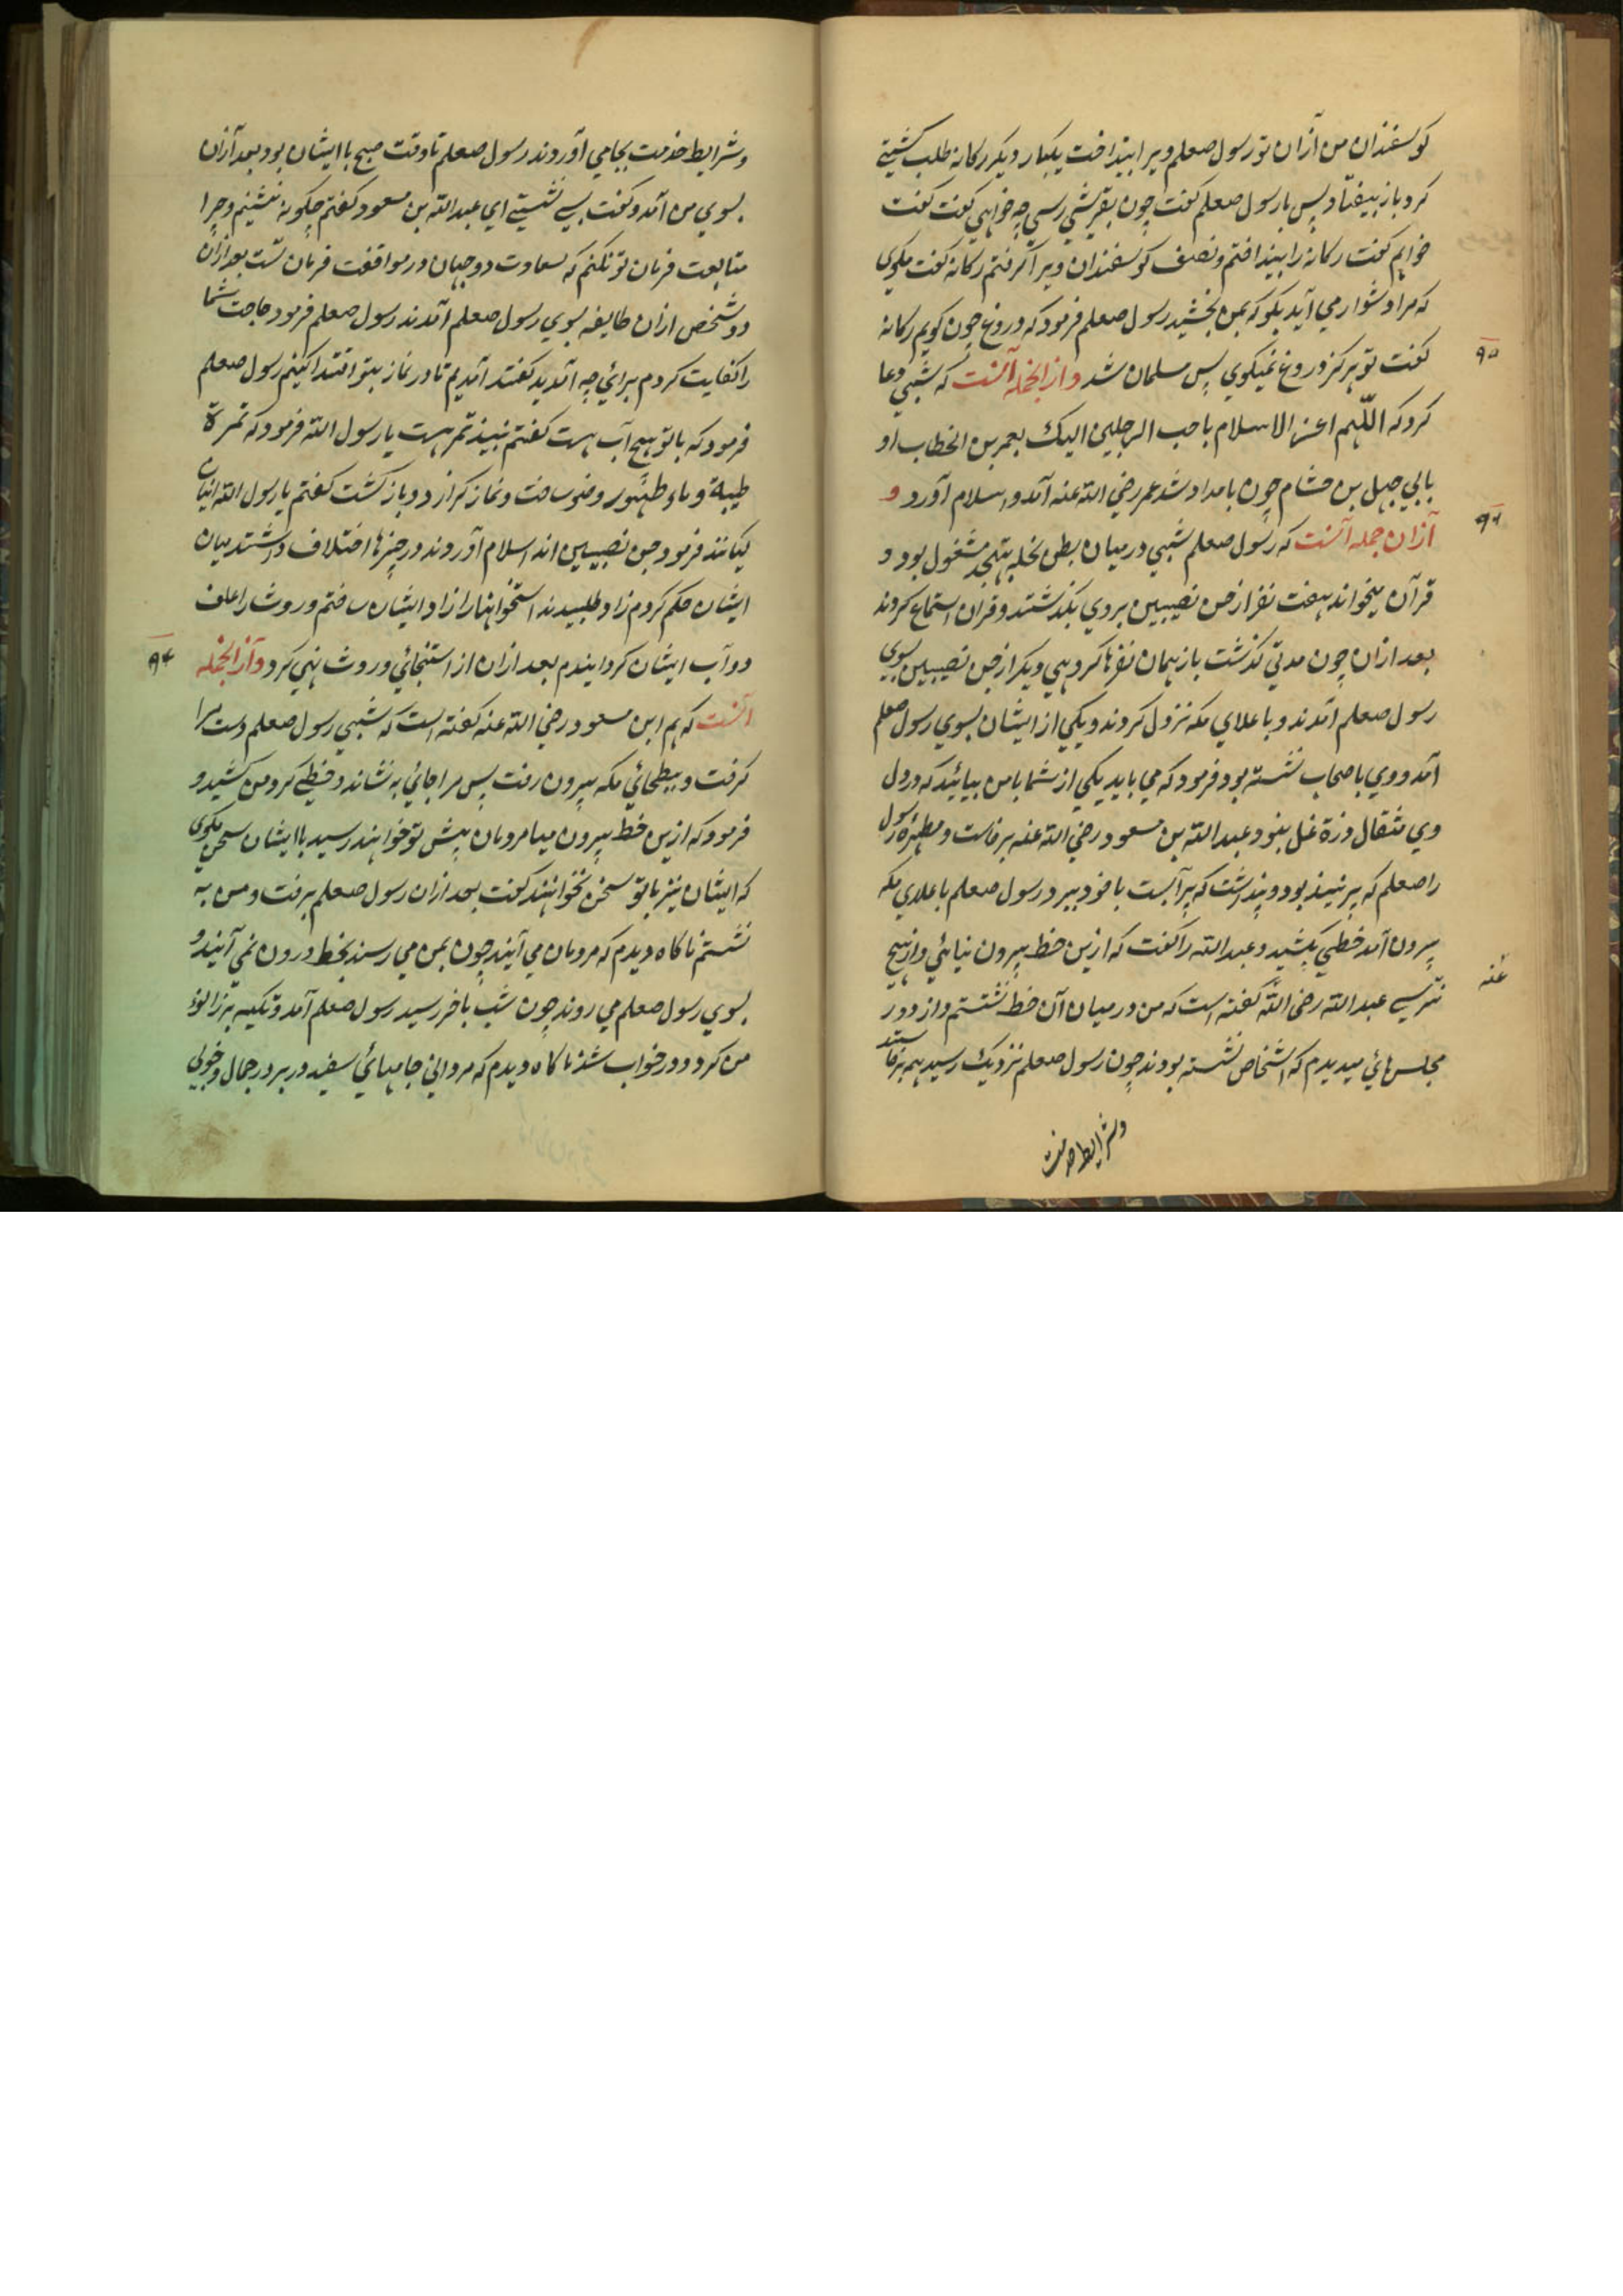 کوسفندان من ازان تو رسول صعلم ویرا بینداخت یکبار دیکر رکانه طلب کشتی
کرد باز بیفتاد پس با رسول صعلم کفت چون بقریشی رسی چه خواهی کفت کفت
خواهم کفت رکانه را بینداختم و نصف کوسفندان ویرا کرفتم رکانه کفت مکوی
که مرا دشوار می آید بکو که بمن بخشید رسول صعلم فرمود که دروغ چون کویم رکانه
کفت تو هرکز دروغ نمیکوی پس مسلمان شد وازانجمله آنست که شبی دعا
۹۵
کرد که اللهم اعز الاسلام باحب الرجلین الیک بعمر بن الخطاب او
بابی جهل بن هشام چون بامداد شد عمر رضی الله عنه آمد و اسلام آورد و
ازان جمله آنست که رسول صعلم شبی درمیان بطن نخله بتهجد مشغول بود و
۹۶
قرآن میخواند هفت نفر از جن نصیبین بروی بکذشتند و قران استماع کردند
بعد ازان چون مدتی کذشت باز همان نفرها کروهی دیکر از جن نصیبین بسوی
رسول صعلم آمدند و باعلای مکه نزول کردند و یکی از ایشان بسوی رسول صعلم
آمد و وی باصحاب نشسته بود فرمود که می باید یکی از شما با من بیائید که در دل
وی مثقال ذرة غل بنود عبدالله بن مسعود رضی الله عنه برخاست و مطهرۀ رسول
را صعلم که پر نبیذ بود و پنداشت که پر آبست با خود ببرد رسول صعلم باعلای مکه
بیرون آمد خطی بکشید و عبدالله را کفت که ازین خط بیرون نیائی و از هیچ
نترسی عبدالله رضی الله کفته است که من درمیان آن خط نشستم و از دور
عنه
مجلس هائی میدیدم که اشخاص نشسته بودند چون رسول صعلم نزدیک رسید همه برخاستند
وشرایط خدمت
وشرایط خدمت بجا می آوردند رسول صعلم تا وقت صبح با ایشان بود بعد ازان
بسوی من آمد و کفت بسی نشستی ای عبدالله بن مسعود کفتم چکونه ننشینم و چرا
متابعت فرمان تو نکنم که سعادت دو جهان در موافقت فرمان تست بعد ازان
دو شخص ازان طایفه بسوی رسول صعلم آمدند رسول صعلم فرمود حاجت شما
را کفایت کردم برائی چه آمدید کفتند آمدیم تا در نماز بتو اقتدا کنیم رسول صعلم
فرمود که با تو هیچ آب هست کفتم نبیذ تمر هست یا رسول الله فرمود که تمرة
طیبة و ماء طهور وضو ساخت و نماز کرارد و باز کشت کفتم یا رسول الله اینان
کیانند فرمود جن نصیبین اند اسلام آوردند در چیزها اختلاف داشتند میان
ایشان حکم کردم زاد طلبیدند استخوانهارا زاد ایشان ساختم و روث را علف
دوآب ایشان کردانیدم بعد ازان از استنجائی و روث نهی کرد وازانجمله
۹۷
آنست که هم ابن مسعود رضی الله عنه کفته است که شبی رسول صعلم دست مرا
کرفت و ببطحائی مکه بیرون رفت پس مرا جائی به نشاند و خطی کرد من کشید و
فرمود که ازین خط بیرون میا مردمان پیش تو خواهند رسید با ایشان سخن مکوی
که ایشان نیز با تو سخن نخواهند کفت بعد ازان رسول صعلم برفت و من به
نشستم ناکاه دیدم که مردمان می آیند چون بمن می رسند بخط درون نمی آیند و
بسوی رسول صعلم می روند چون شب باخر رسید رسول صعلم آمد و تکیه بر زانوء
من کرد و در خواب شد ناکاه دیدم که مردانی جامهائی سفید در بر در جمال و خوبی